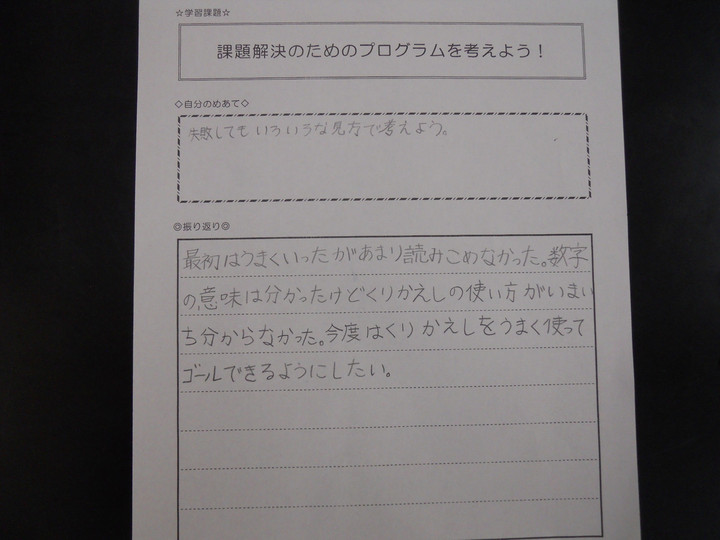 ☆学習課題☆
課題解決のためのプログラムを考えよう！
◇自分のめあて◇
失敗してもいろいろな見方で考えよう。
◎振り返り◎
最初はうまくいったがあまり読みこめなかった。数字
の意味は分かったけどくりかえしの使い方がいまい
ち分からなかった。今度はくりかえしをうまく使って
ゴールできるようにしたい。